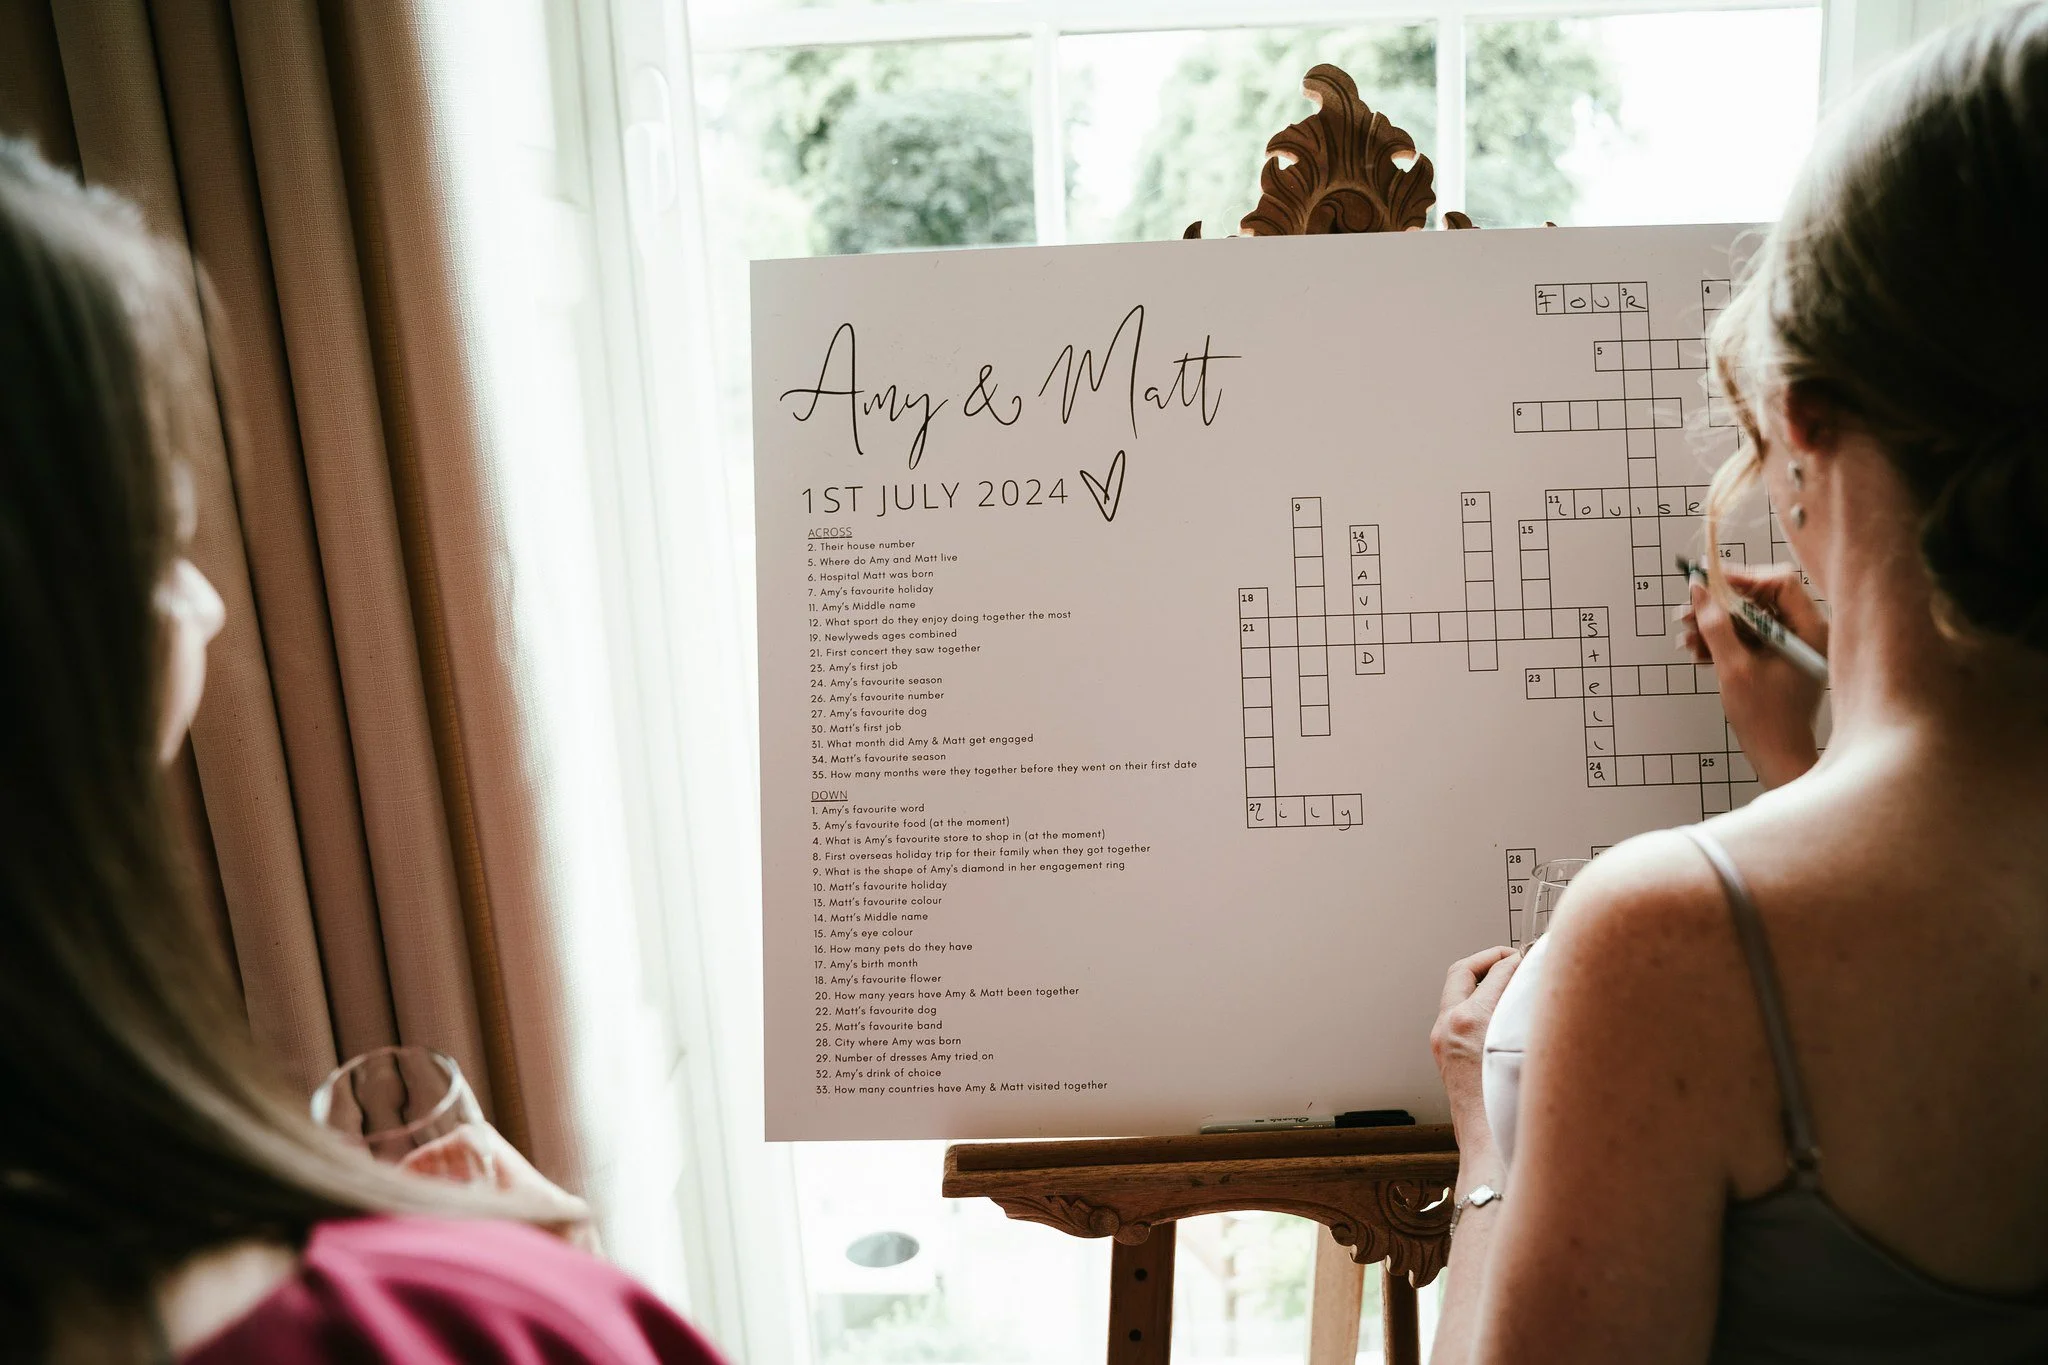 Amy & Matt
1ST JULY 2024
ACROSS
2. Their house number
5. Where do Amy and Matt live
6. Hospital Matt was born
7. Amy's favourite holiday
11. Amy's Middle name
12. What sport do they enjoy doing together the most
19. Newlyweds ages combined
21. First concert they saw together
23. Amy's first job
24. Amy's favourite season
26. Amy's favourite number
27. Amy's favourite dog
30. Matt's first job
31. What month did Amy & Matt get engaged
34. Matt's favourite season
35. How many months were they together before they went on their first date
DOWN
1. Amy's favourite word
3. Amy's favourite food (at the moment)
4. What is Amy's favourite store to shop in (at the moment)
8. First overseas holiday trip for their family when they got together
9. What is the shape of Amy's diamond in her engagement ring
10. Matt's favourite holiday
13. Matt's favourite colour
14. Matt's Middle name
15. Amy's eye colour
16. How many pets do they have
17. Amy's birth month
18. Amy's favourite flower
20. How many years have Amy & Matt been together
22. Matt's favourite dog
25. Matt's favourite band
28. City where Amy was born
29. Number of dresses Amy tried on
32. Amy's drink of choice
33. How many countries have Amy & Matt visited together
2 FOUR 3
4
5
6
9
10
11 Louise
14 DAVID
15
16
18
19
21
22 Stella
23
24
25
27 Lily
28
30